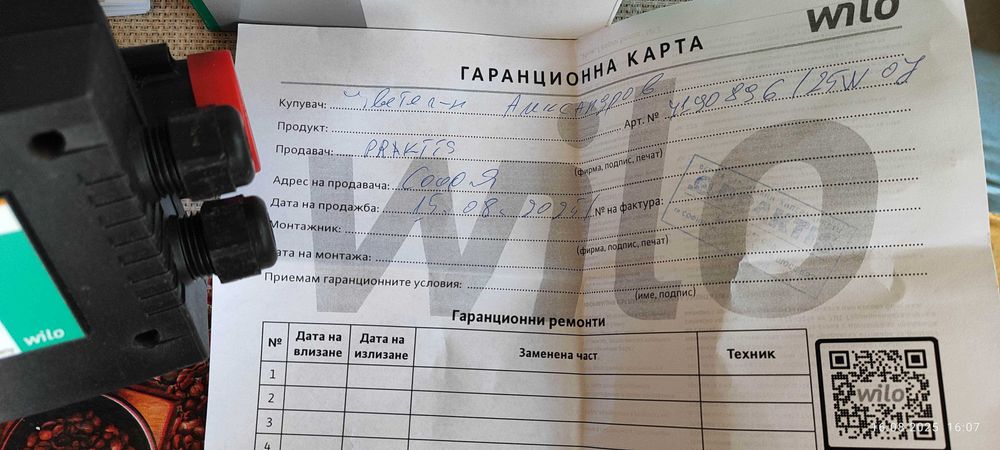 wilo
ГАРАНЦИОННА КАРТА
Купувач: Цветелин Александров
Арт. № 4190896/25W 07
Продукт:
Продавач: PRAKTIS
(фирма, подпис, печат)
Адрес на продавача: София
Дата на продажба: 15.08.2025 № на фактура:
Монтажник:
(фирма, подпис, печат)
Дата на монтажа:
Приемам гаранционните условия:
(име, подпис)
Гаранционни ремонти
№ Дата на влизане Дата на излизане Заменена част Техник
1
2
3
4
wilo
wilo
wilo
16.08.2025 16:07